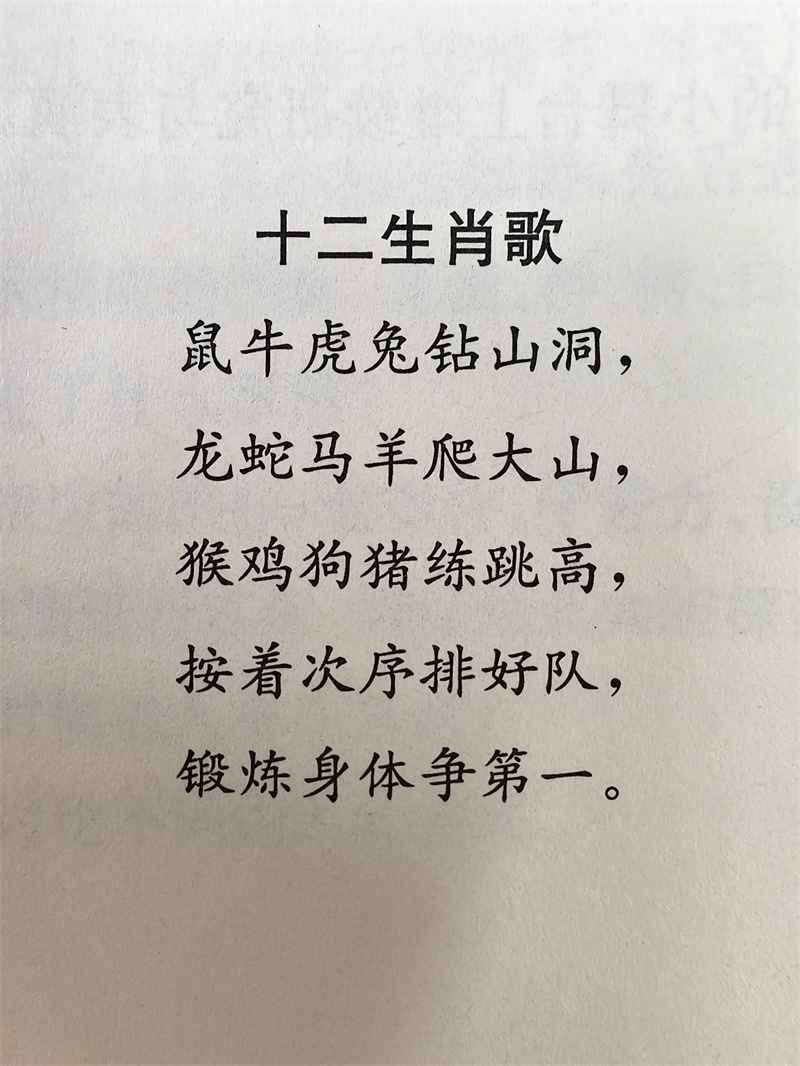 十二生肖歌
鼠牛虎兔钻山洞，
龙蛇马羊爬大山，
猴鸡狗猪练跳高，
按着次序排好队，
锻炼身体争第一。